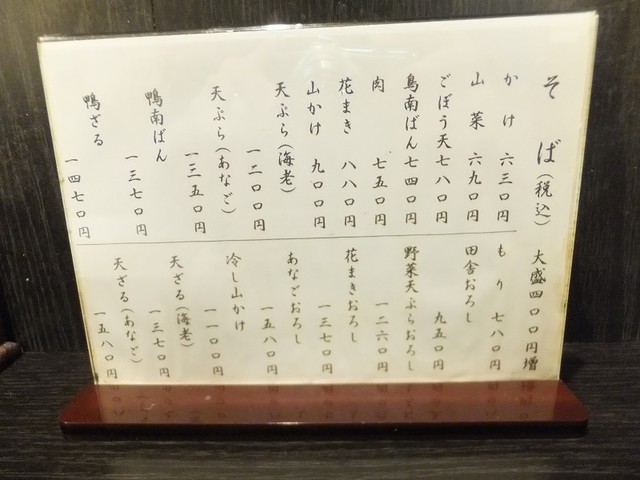 そば（税込） 大盛四〇〇円増
かけ 六三〇円
山菜 六九〇円
ごぼう天 七八〇円
鳥南ばん 七四〇円
肉 七五〇円
花まき 八八〇円
山かけ 九〇〇円
天ぷら（海老）
一二〇〇円
天ぷら（あなご）
一三五〇円
鴨南ばん
一三七〇円
鴨ざる
一四七〇円
もり 七八〇円
田舎おろし
九五〇円
野菜天ぷらおろし
一二六〇円
花まきおろし
一三七〇円
あなごおろし
一五八〇円
冷し山かけ
一一〇〇円
天ざる（海老）
一三七〇円
天ざる（あなご）
一五八〇円